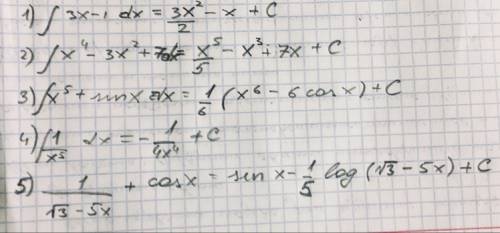 1) ∫ 3x-1 dx = 3x²/2 - x + C
2) ∫ x⁴ - 3x² + 7dx = x⁵/5 - x³ + 7x + C
3) ∫ x⁵ + sinx dx = 1/6 (x⁶ - 6 cosx) + C
4) ∫ 1/x⁵ dx = - 1/4x⁴ + C
5) 1/√3 - 5x + cosx = sin x - 1/5 log (√3 - 5x) + C